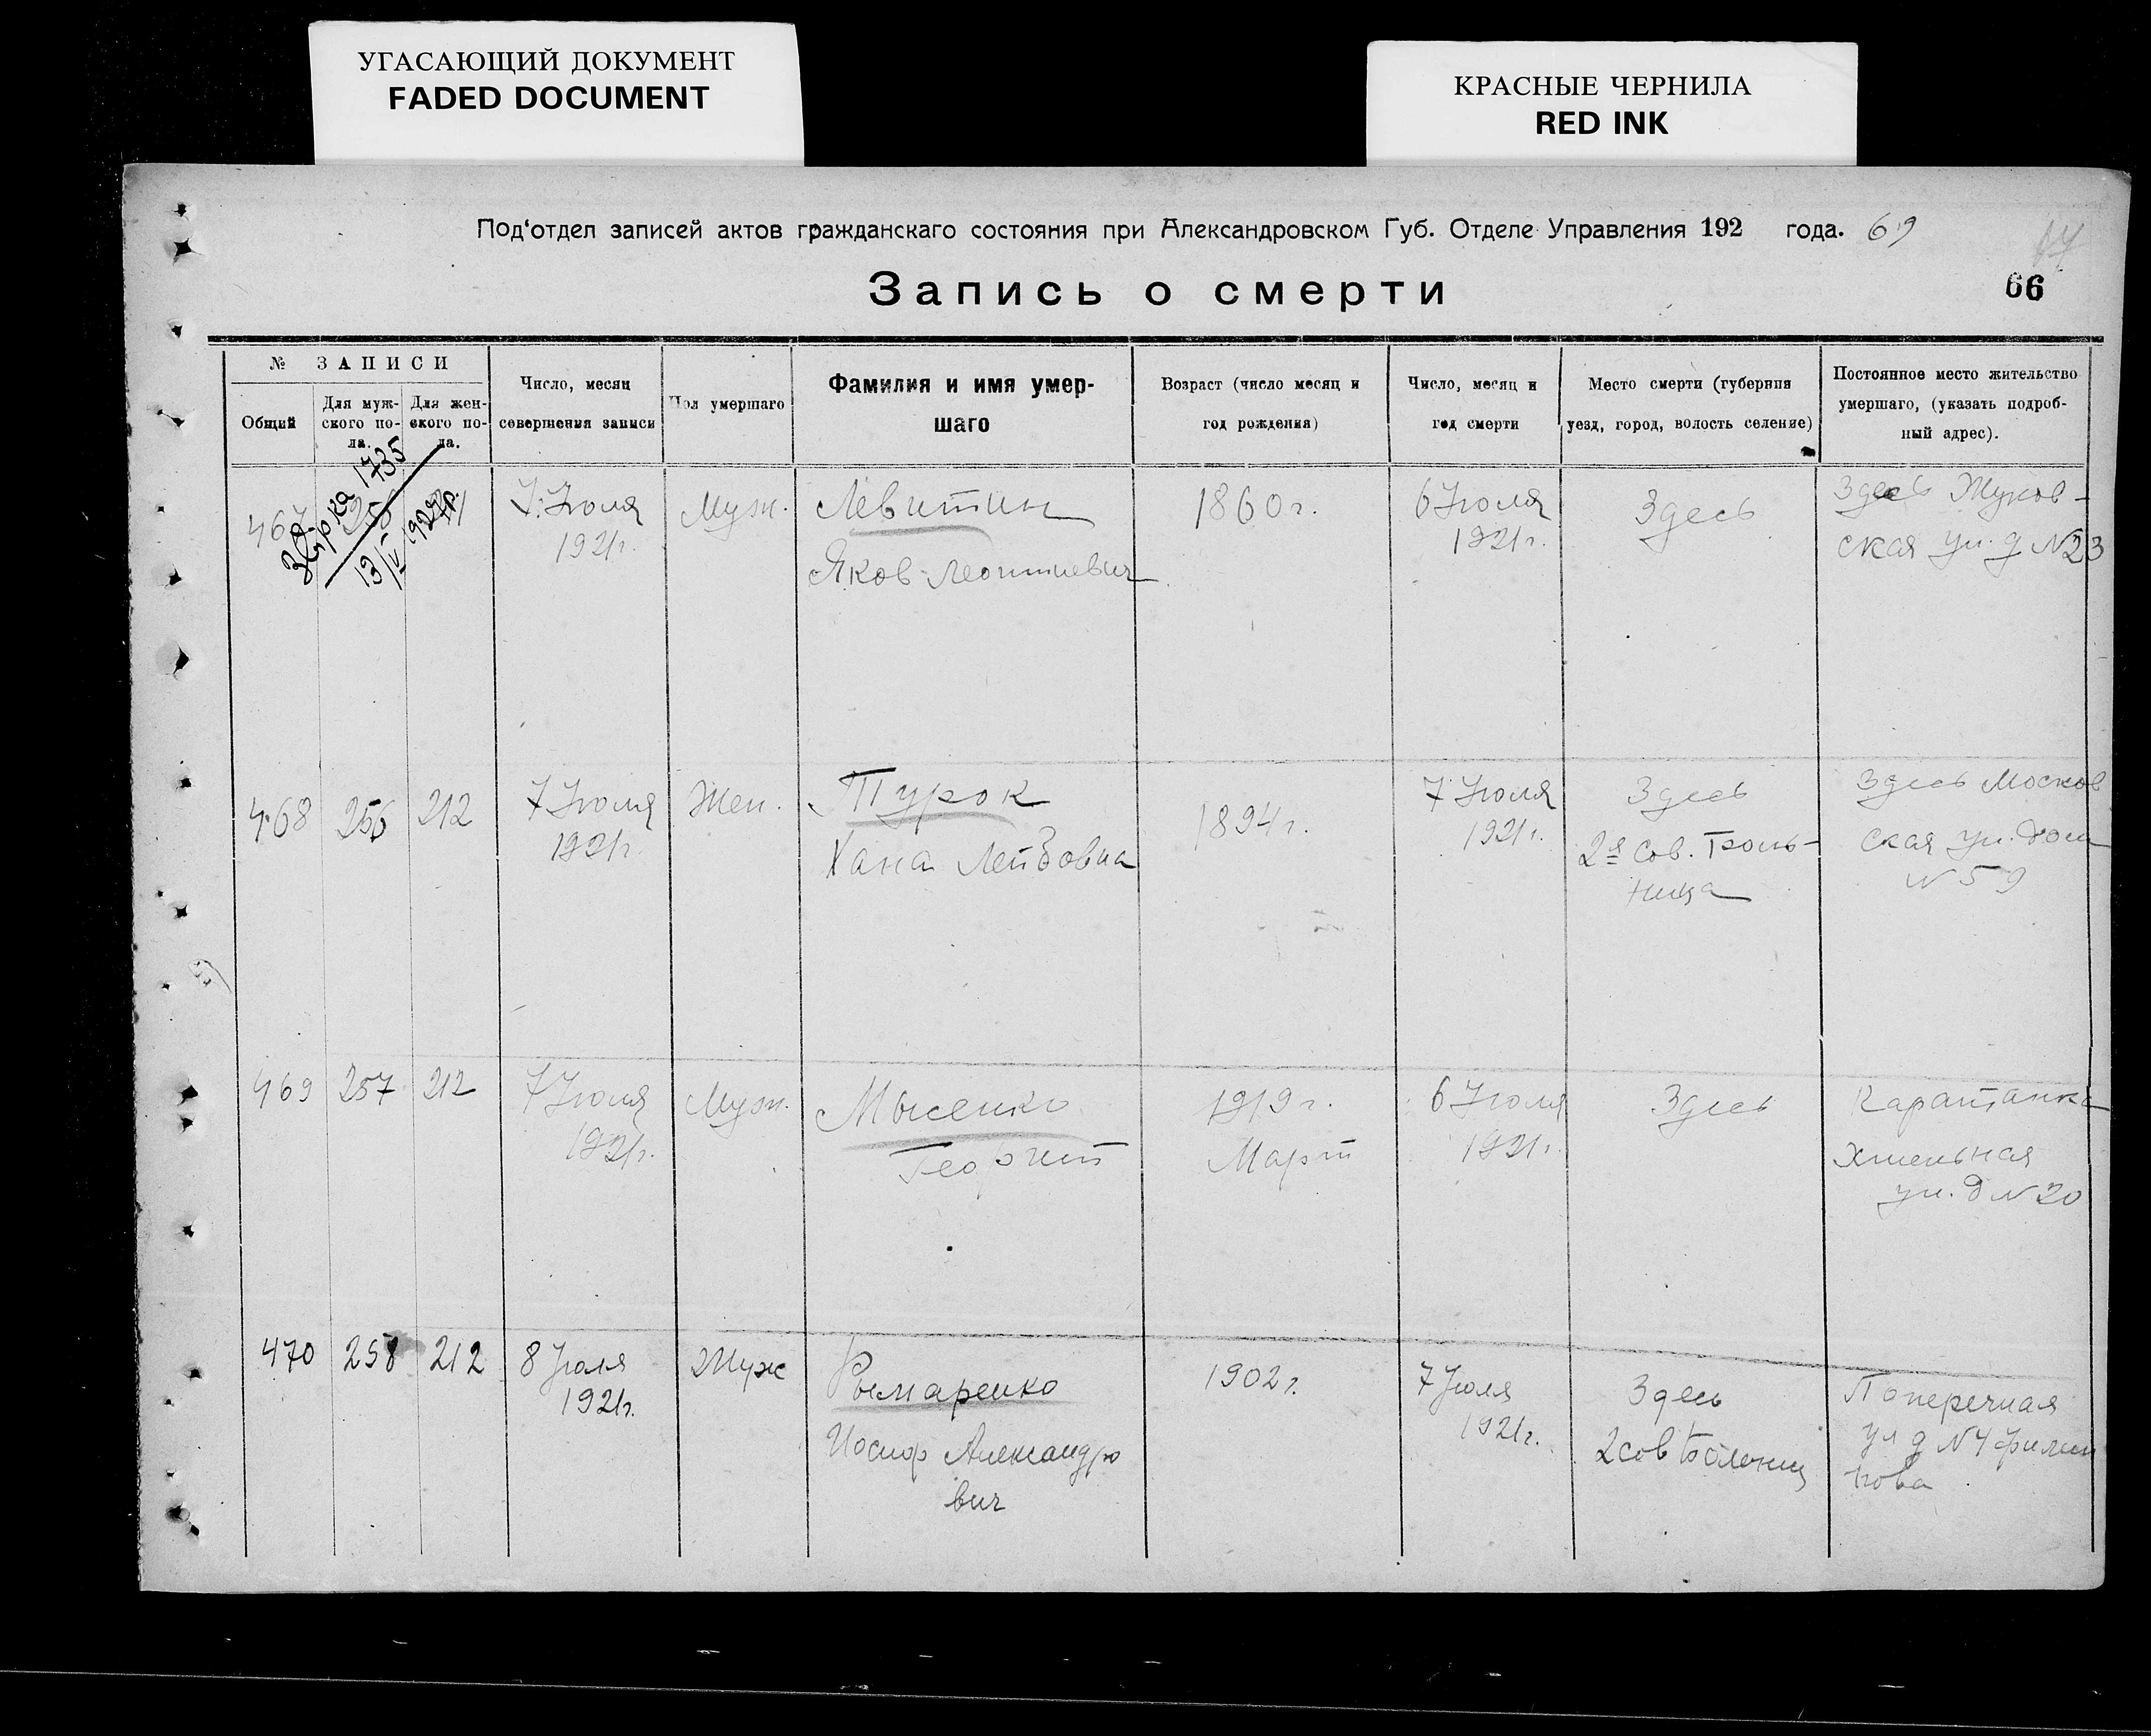 УГАСАЮЩИЙ ДОКУМЕНТ
FADED DOCUMENT
КРАСНЫЕ ЧЕРНИЛА
RED INK
Под‘отдел записей актов гражданскаго состояния при Александровском Губ. Отделе Управления 192 года. 69
Запись о смерти
66
№ ЗАПИСИ
Общий
Для муж-
ского по-
ла.
Для жен-
ского по-
ла.
Число, месяц
совершения записи
Пол умершаго
Фамилия и имя умер-
шаго
Возраст (число месяц и
год рождения)
Число, месяц и
год смерти
Место смерти (губерния
уезд, город, волость селение)
Постоянное место жительство
умершаго, (указать подроб-
ный адрес).
467
1735
13/V
7 Июля
1921г.
Муж.
Левитин
Яков Леонтиевич
1860г.
6 Июля
1921г.
Здесь
Здесь Жуков-
ская ул. д №23
468
256
212
7 Июля
1921г
Жен.
Турок
Хана Лейбовна
1894г.
7 Июля
1921г.
Здесь
2я Сов. Боль-
ница
Здесь Москов
ская ул. дом
№59
469
257
212
7 Июля
1921г.
Муж.
Мысенко
Георгий
1919г.
Март
6 Июля
1921г.
Здесь
Хмельная
ул. д №20
470
258
212
8 Июля
1921г.
Муж
Рымаренко
Иосиф Александро
вич
1902г.
7 Июля
1921г.
Здесь
2 сов Больниц
Поперечная
ул д №4 Филип
пова